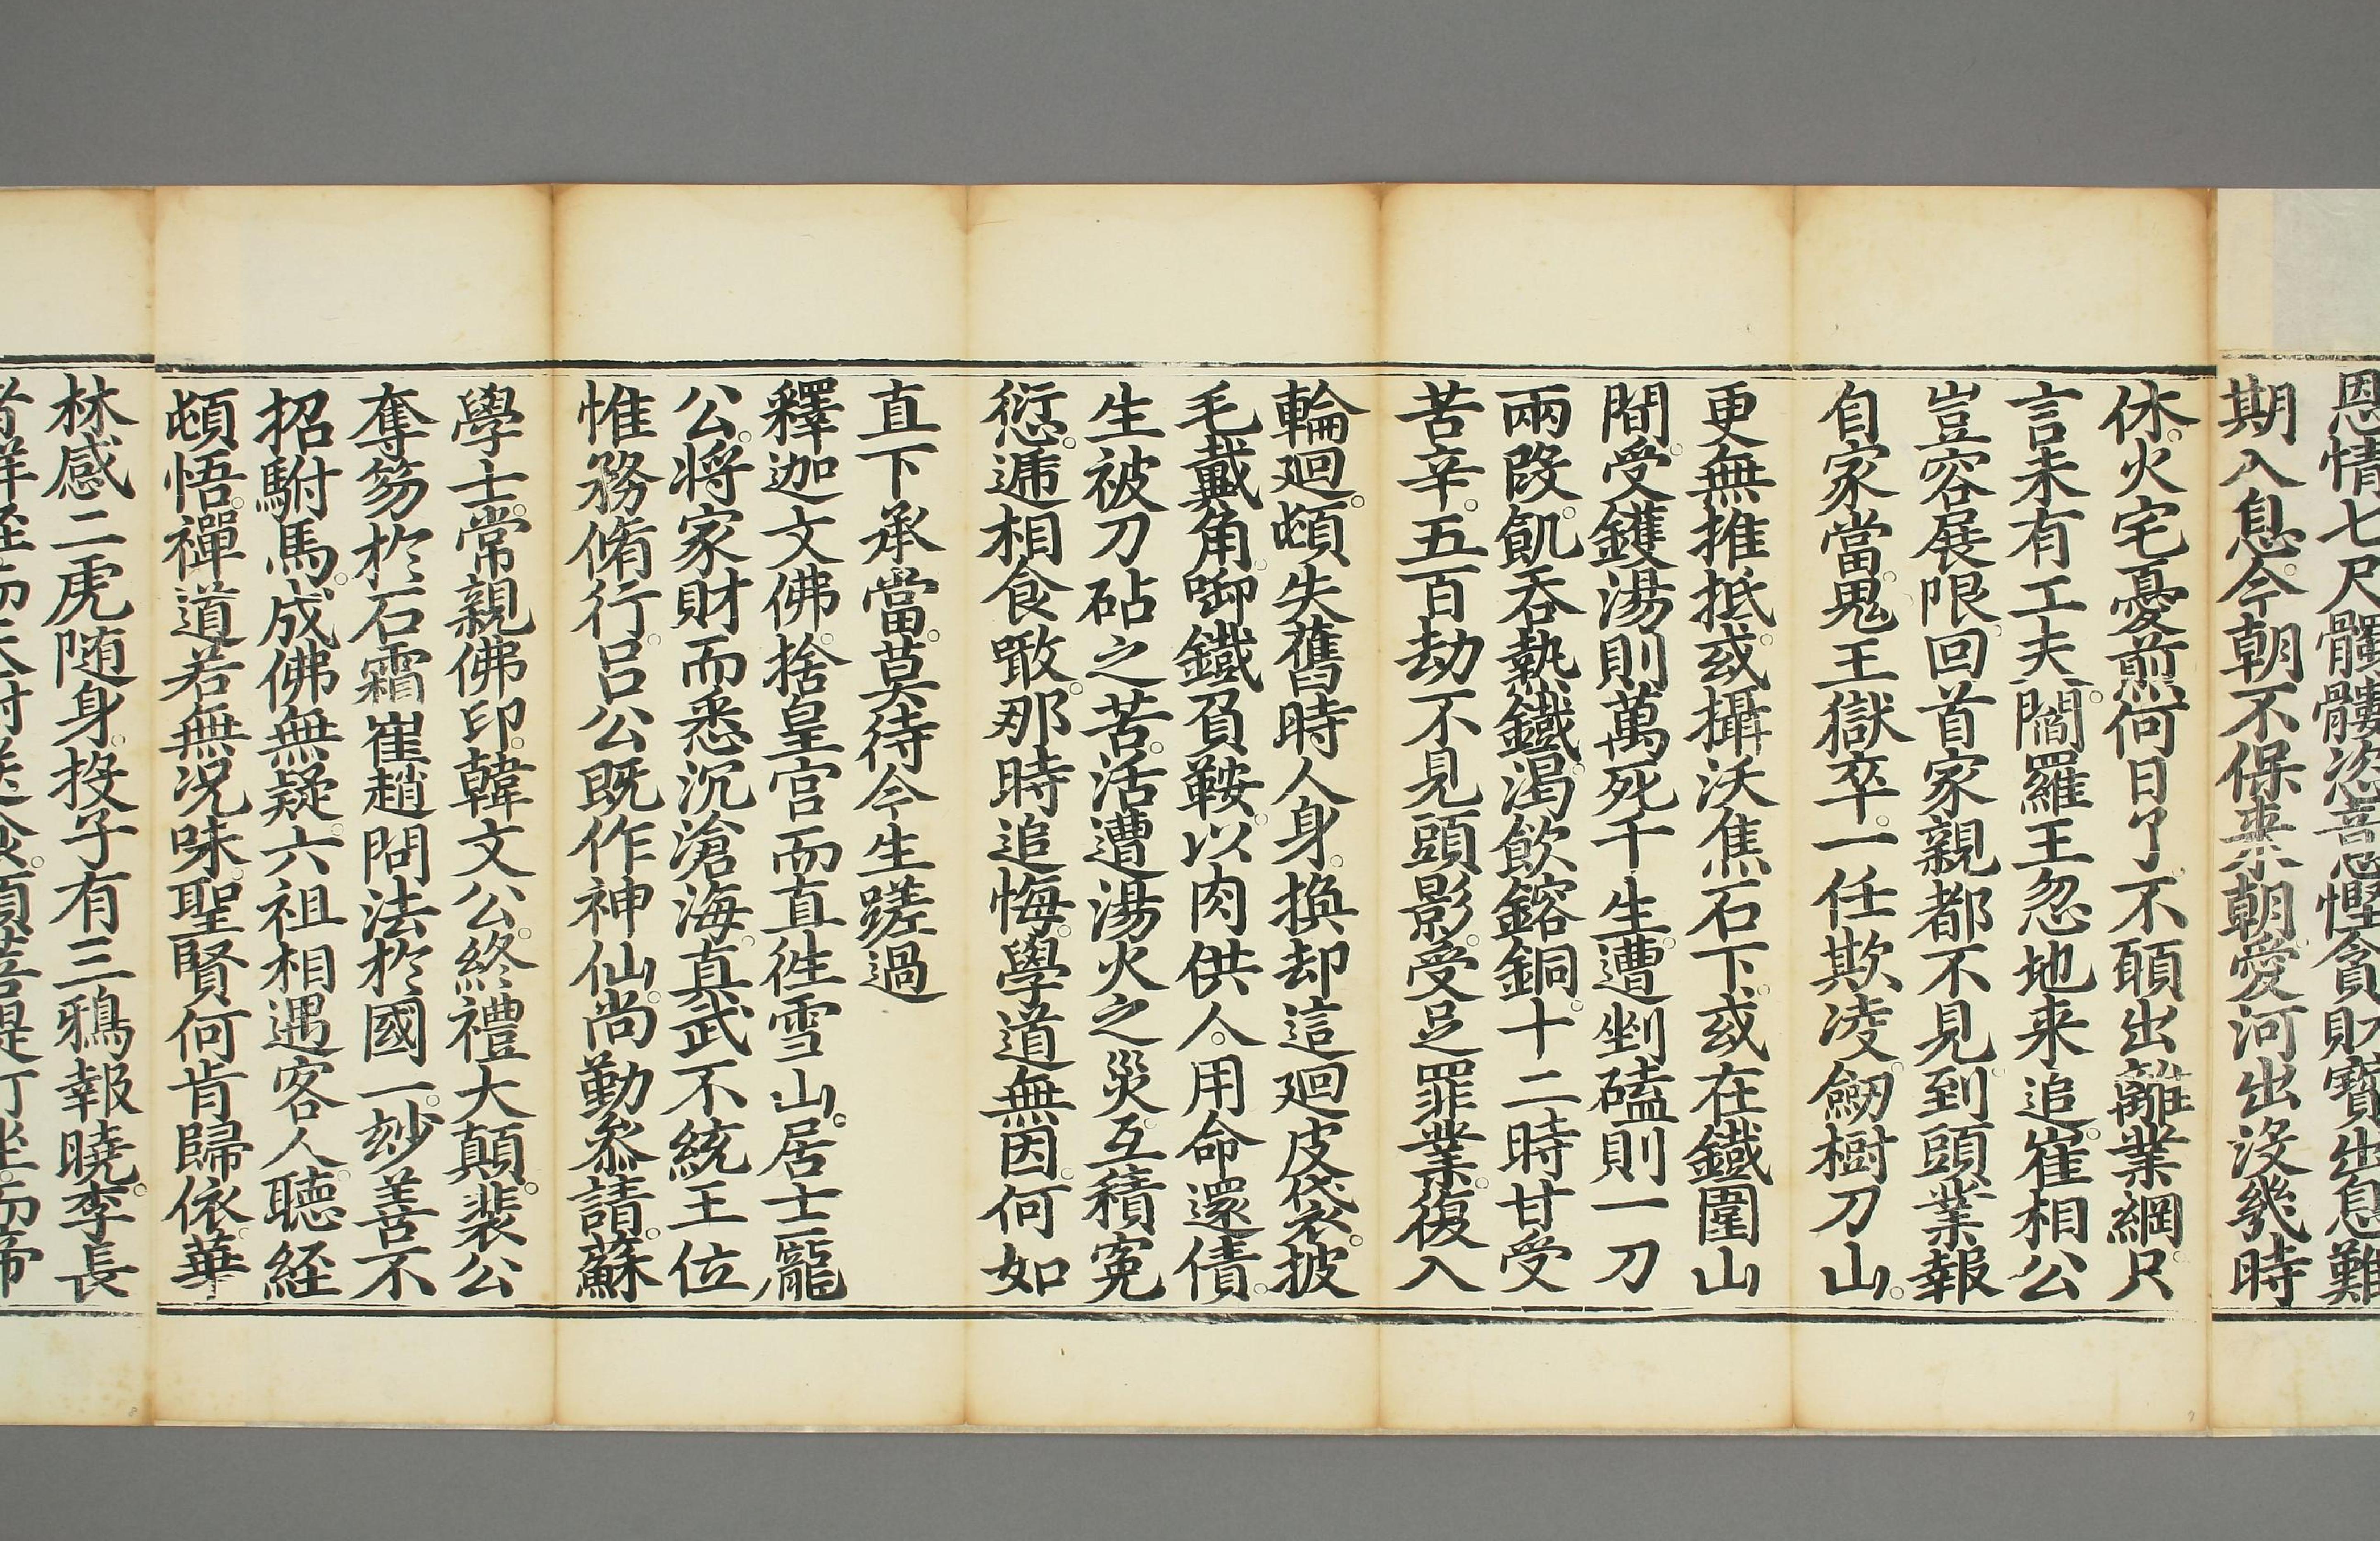 恩情七尺髑髏恣意慳貪財寶出息難
期入息今朝不保来朝愛河出沒幾時
休火宅憂煎何日了不願出籬業綱只
言未有工夫閻羅王忽地来追崔相公
豈容展限回首家親都不見到頭業報
自家當鬼王獄卒一任欺凌劒樹刀山
更無推抵或攝沃焦石下或在鐵圍山
間受鑊湯則萬死千生遭剉磕則一刀
兩段飢吞熱鐵渴飲鎔銅十二時甘受
苦辛五百劫不見頭影受足罪業復入
輪迴頓失舊時人身換却這迴皮袋披
毛戴角啣鐵負鞍以肉供人用命還債
生被刀砧之苦活遭湯火之災互積冤
愆遞相食噉那時追悔學道無因何如
直下承當莫待今生蹉過
釋迦文佛捨皇宮而直徃雪山居士龐
公將家財而悉沉滄海真武不統王位
惟務脩行吕公既作神仙尚勤叅請蘇
學士常親佛印韓文公終禮大顛裴公
奪笏於石霜崔趙問法於國一玅善不
招駙馬成佛無疑六祖相遇客人聴経
頓悟禪道若無况味聖賢何肯歸依華
林感二虎随身投子有三鴉報曉李長